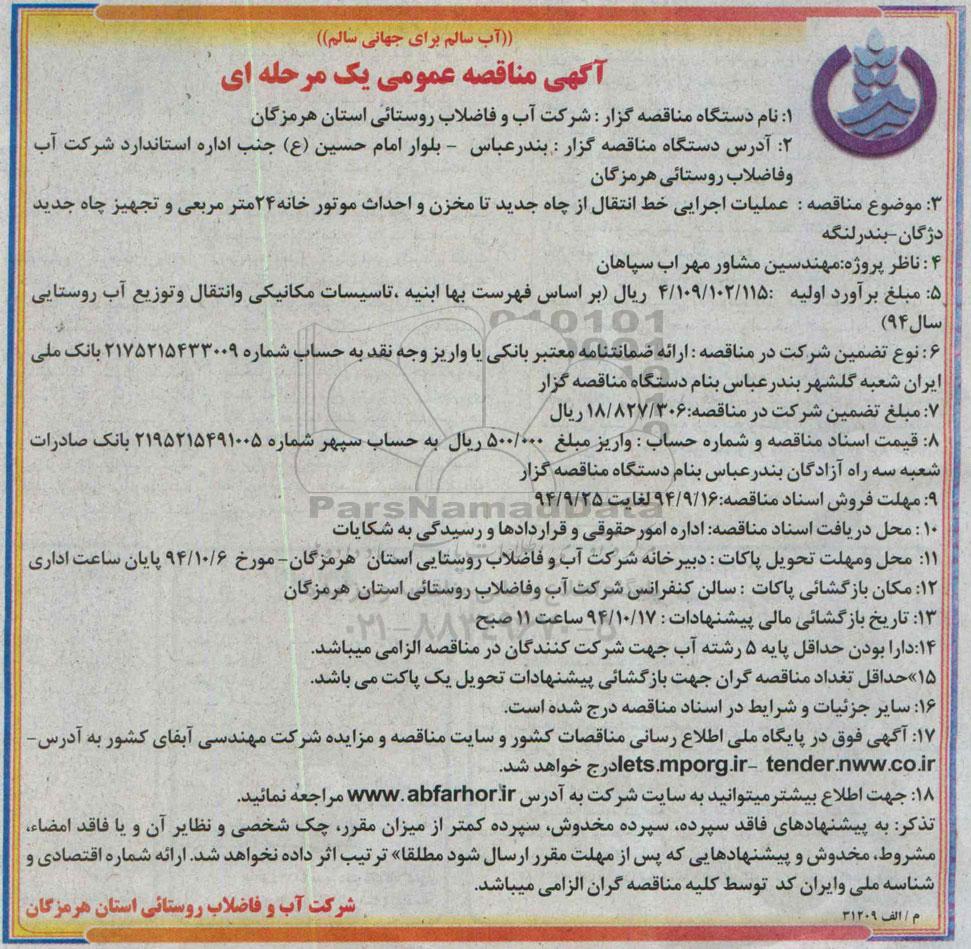 ((آب سالم برای جهانی سالم))
آگهی مناقصه عمومی یک مرحله ای
۱: نام دستگاه مناقصه گزار : شرکت آب و فاضلاب روستائی استان هرمزگان
۲: آدرس دستگاه مناقصه گزار : بندرعباس - بلوار امام حسین (ع) جنب اداره استاندارد شرکت آب
وفاضلاب روستائی هرمزگان
۳: موضوع مناقصه : عملیات اجرایی خط انتقال از چاه جدید تا مخزن و احداث موتور خانه۲۴متر مربعی و تجهیز چاه جدید
دژگان-بندرلنگه
۴ : ناظر پروژه:مهندسین مشاور مهر اب سپاهان
۵: مبلغ برآورد اولیه :۴/۱۰۹/۱۰۲/۱۱۵ ریال (بر اساس فهرست بها ابنیه ،تاسیسات مکانیکی وانتقال وتوزیع آب روستایی
سال۹۴)
۶ : نوع تضمین شرکت در مناقصه : ارائه ضمانتنامه معتبر بانکی یا واریز وجه نقد به حساب شماره ۲۱۷۵۲۱۵۴۳۳۰۰۹ بانک ملی
ایران شعبه گلشهر بندرعباس بنام دستگاه مناقصه گزار
۷: مبلغ تضمین شرکت در مناقصه:۱۸/۸۲۷/۳۰۶ ریال
۸: قیمت اسناد مناقصه و شماره حساب : واریز مبلغ ۵۰۰/۰۰۰ ریال به حساب سپهر شماره ۲۱۹۵۲۱۵۴۹۱۰۰۵ بانک صادرات
شعبه سه راه آزادگان بندرعباس بنام دستگاه مناقصه گزار
۹: مهلت فروش اسناد مناقصه:۹۴/۹/۱۶ لغایت ۹۴/۹/۲۵
۱۰ : محل دریافت اسناد مناقصه: اداره امورحقوقی و قراردادها و رسیدگی به شکایات
۱۱: محل ومهلت تحویل پاکات : دبیرخانه شرکت آب و فاضلاب روستایی استان هرمزگان- مورخ ۹۴/۱۰/۶ پایان ساعت اداری
۱۲: مکان بازگشائی پاکات : سالن کنفرانس شرکت آب وفاضلاب روستائی استان هرمزگان
۱۳: تاریخ بازگشائی مالی پیشنهادات : ۹۴/۱۰/۱۷ ساعت ۱۱ صبح
۱۴:دارا بودن حداقل پایه ۵ رشته آب جهت شرکت کنندگان در مناقصه الزامی میباشد.
۱۵»حداقل تغداد مناقصه گران جهت بازگشائی پیشنهادات تحویل یک پاکت می باشد.
۱۶: سایر جزئیات و شرایط در اسناد مناقصه درج شده است.
۱۷: آگهی فوق در پایگاه ملی اطلاع رسانی مناقصات کشور و سایت مناقصه و مزایده شرکت مهندسی آبفای کشور به آدرس-
lets.mporg.ir- tender.nww.co.ir درج خواهد شد.
۱۸: جهت اطلاع بیشترمیتوانید به سایت شرکت به آدرس www.abfarhor.ir مراجعه نمائید.
تذکر: به پیشنهادهای فاقد سپرده، سپرده مخدوش، سپرده کمتر از میزان مقرر، چک شخصی و نظایر آن و یا فاقد امضاء،
مشروط، مخدوش و پیشنهادهایی که پس از مهلت مقرر ارسال شود مطلقا» ترتیب اثر داده نخواهد شد. ارائه شماره اقتصادی و
شناسه ملی وایران کد توسط کلیه مناقصه گران الزامی میباشد.
شرکت آب و فاضلاب روستائی استان هرمزگان
م / الف ۳۱۲۰۹
ParsNamadData